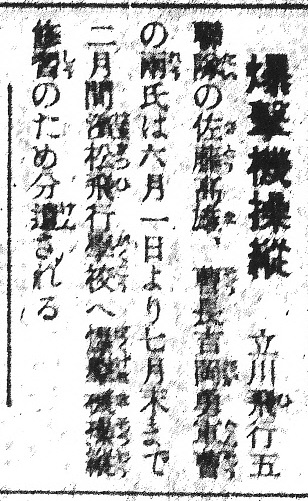 爆擊機操縱
立川飛行五
聯隊の佐藤高雄、曹長吉岡勇軍曹
の兩氏は六月一日より七月末まで
二月間濱松飛行學校へ爆擊機操縱
修習のため分遣される